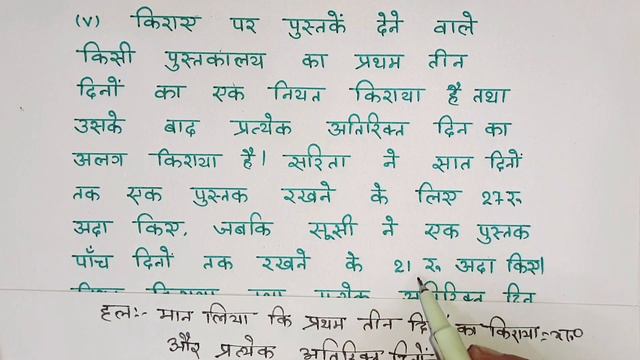 (v) किराए पर पुस्तकें देने वाले
किसी पुस्तकालय का प्रथम तीन
दिनों का एक नियत किराया है तथा
उसके बाद प्रत्येक अतिरिक्त दिन का
अलग किराया है। सरिता ने सात दिनों
तक एक पुस्तक रखने के लिए 27 रु
अदा किए, जबकि सूसी ने एक पुस्तक
पाँच दिनों तक रखने के 21 रु अदा किए।
प्रत्येक अतिरिक्त दिन
हल:- मान लिया कि प्रथम तीन दिनों का किराया = x रु०
और प्रत्येक अतिरिक्त दिनों